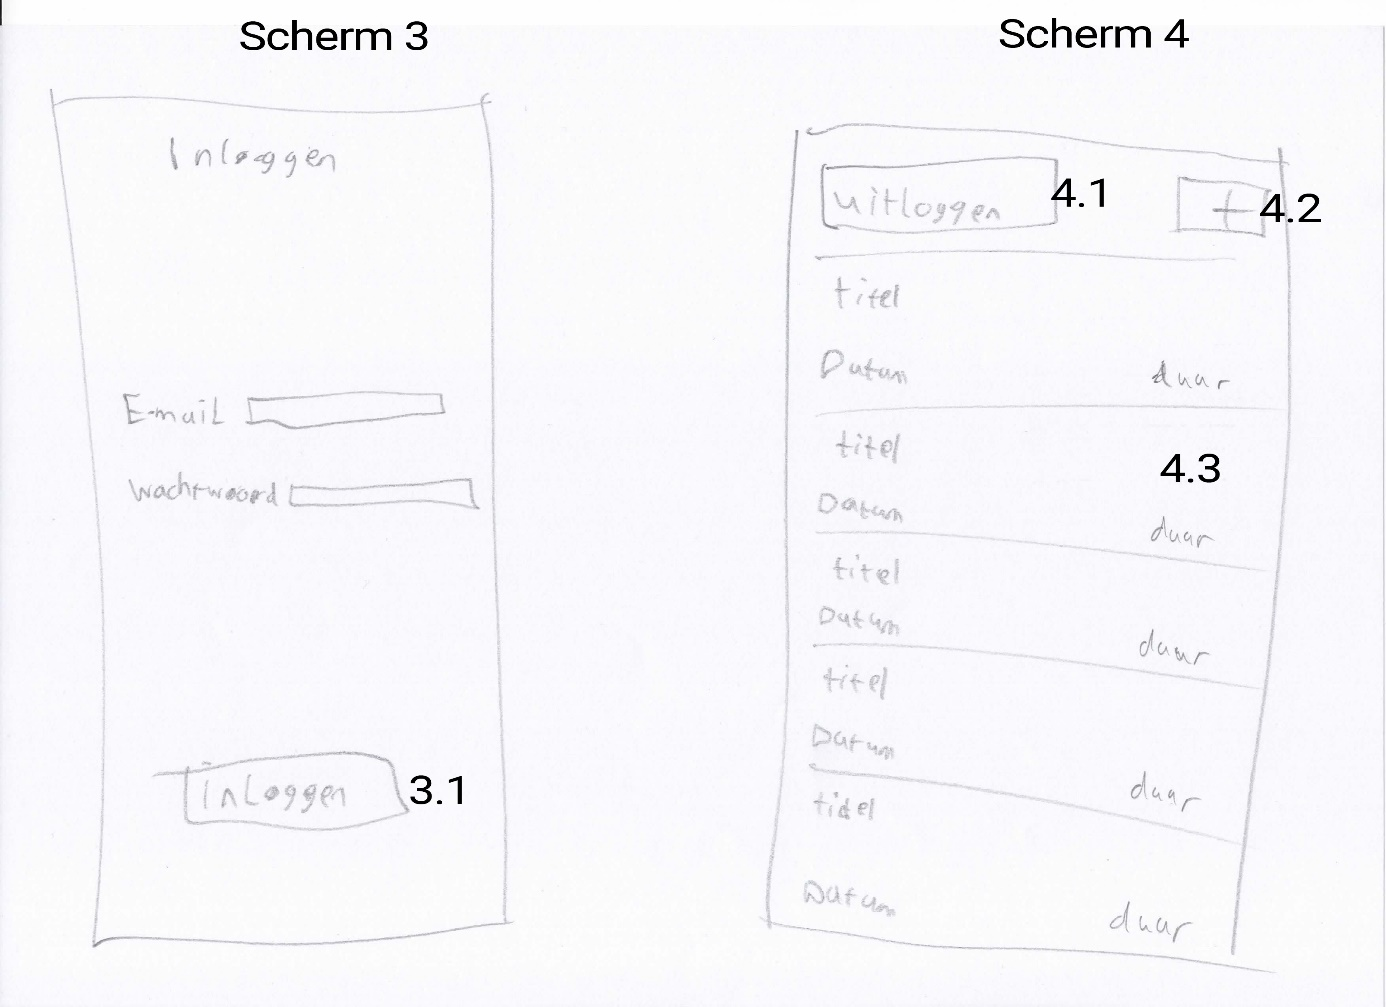 Scherm 3
Inloggen
E-mail
Wachtwoord
inloggen 3.1
Scherm 4
uitloggen 4.1 + 4.2
titel
Datum duur
titel
4.3
Datum duur
titel
Datum duur
titel
Datum duur
titel
Datum duur